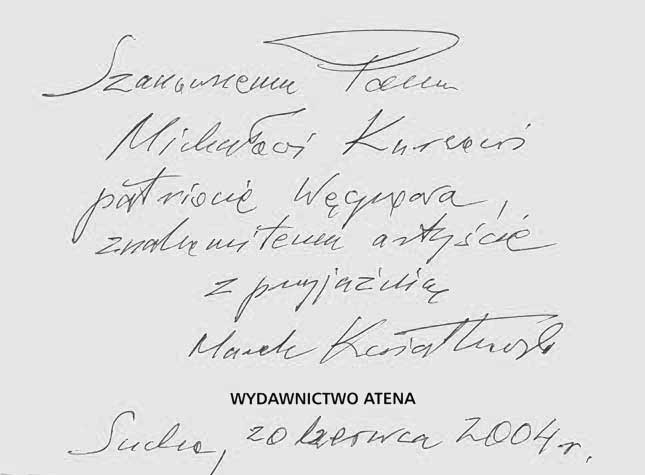 Szanownemu Panu
Michałowi Kurcowi
patriocie Węgrowa,
znakomitemu artyście
z przyjaźnią
Marek Kwiatkowski
WYDAWNICTWO ATENA
Sucha, 20 czerwca 2004 r.